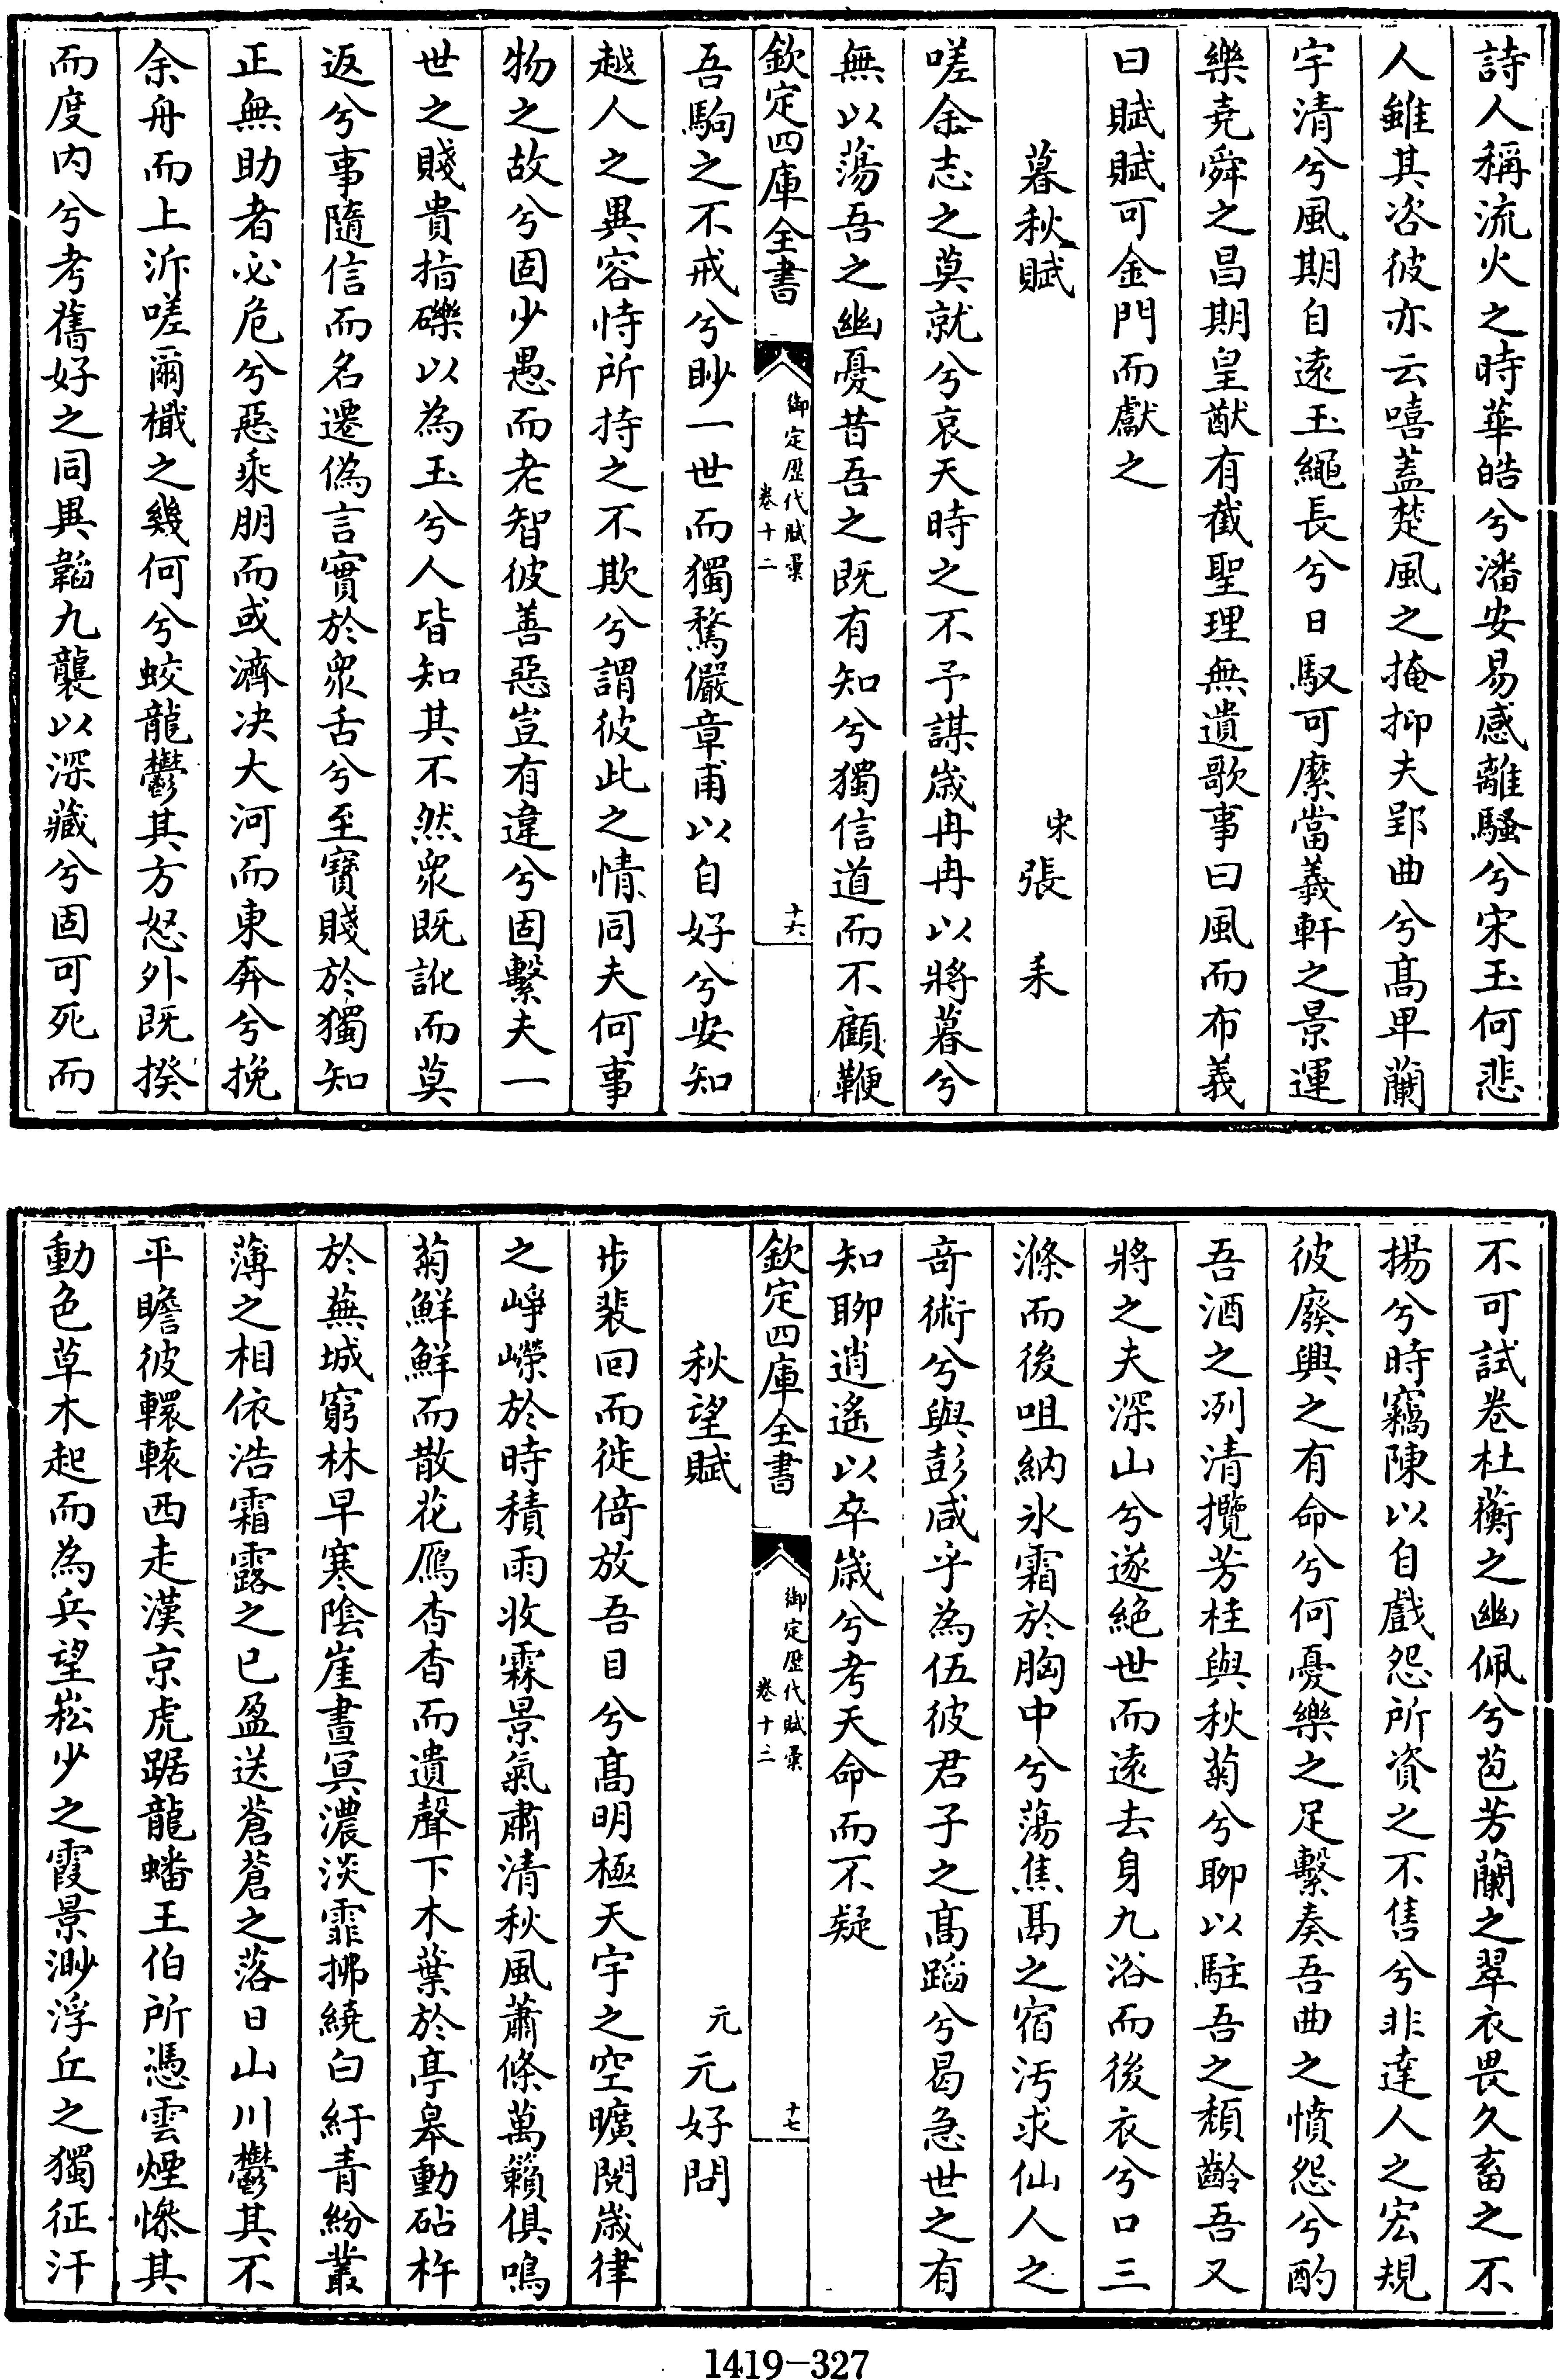 詩人稱流火之時華皓兮潘安易感離騷兮宋玉何悲
人雖其咨彼亦云嘻蓋楚風之掩抑夫郢曲兮髙卑蘭
宇清兮風期自逺玉繩長兮日馭可縻當羲軒之景運
樂堯舜之昌期皇猷有截聖理無遺歌事曰風而布義
曰賦賦可金門而獻之
暮秋賦　宋張耒
嗟余志之莫就兮哀天時之不予謀歳冉冉以將暮兮
無以蕩吾之幽憂昔吾之既有知兮獨信道而不顧鞭
欽定四庫全書　御定歴代賦彙　卷十二　十六
吾駒之不戒兮眇一世而獨騖儼章甫以自好兮安知
越人之異容恃所持之不欺兮謂彼此之情同夫何事
物之故兮固少愚而老智彼善惡豈有違兮固繫夫一
世之賤貴指礫以為玉兮人皆知其不然衆既訛而莫
返兮事隨信而名遷偽言實於衆舌兮至寳賤於獨知
正無助者必危兮惡乘朋而或濟决大河而東奔兮挽
余舟而上泝嗟爾檝之幾何兮蛟龍鬱其方怒外既揆
而度内兮考舊好之同異韜九襲以深藏兮固可死而
不可試卷杜蘅之幽佩兮芭芳蘭之翠衣畏久畜之不
揚兮時竊陳以自戲怨所資之不售兮非達人之宏規
彼廢興之有命兮何憂樂之足繫奏吾曲之憤怨兮酌
吾酒之冽清攬芳桂與秋菊兮聊以駐吾之頹齡吾又
將之夫深山兮遂絶世而逺去身九浴而後衣兮口三
滌而後咀納氷霜於胸中兮蕩焦鬲之宿汚求仙人之
竒術兮與彭咸乎為伍彼君子之髙蹈兮曷急世之有
知聊逍遙以卒歳兮考天命而不疑
欽定四庫全書　御定歴代賦彙　卷十二　十七
秋望賦　元元好問
步裴回而徙倚放吾目兮髙明極天宇之空曠閱歳律
之崢嶸於時積雨收霖景氣肅清秋風蕭條萬籟俱鳴
菊鮮鮮而散花鴈杳杳而遺聲下木葉於亭皋動砧杵
於蕪城窮林早寒隂崖晝冥濃淡霏拂繞白紆青紛叢
薄之相依浩霜露之已盈送蒼蒼之落日山川鬱其不
平瞻彼轘轅西走漢京虎踞龍蟠王伯所憑雲煙慘其
動色草木起而為兵望崧少之霞景渺浮丘之獨征汗
1419-327